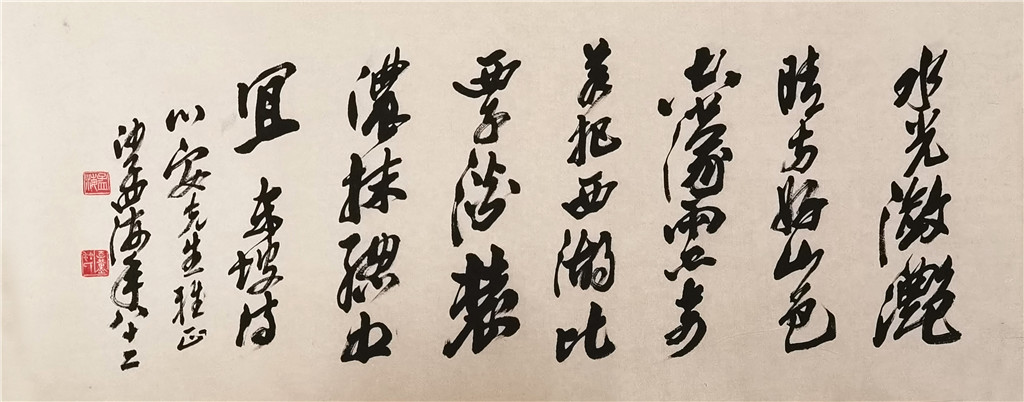 水光瀲灧
晴方好山色
空濛雨亦奇
若把西湖比
西子淡裝
濃抹總相
宜 東坡诗
安先生雅正
沙孟海年八十二
孟海